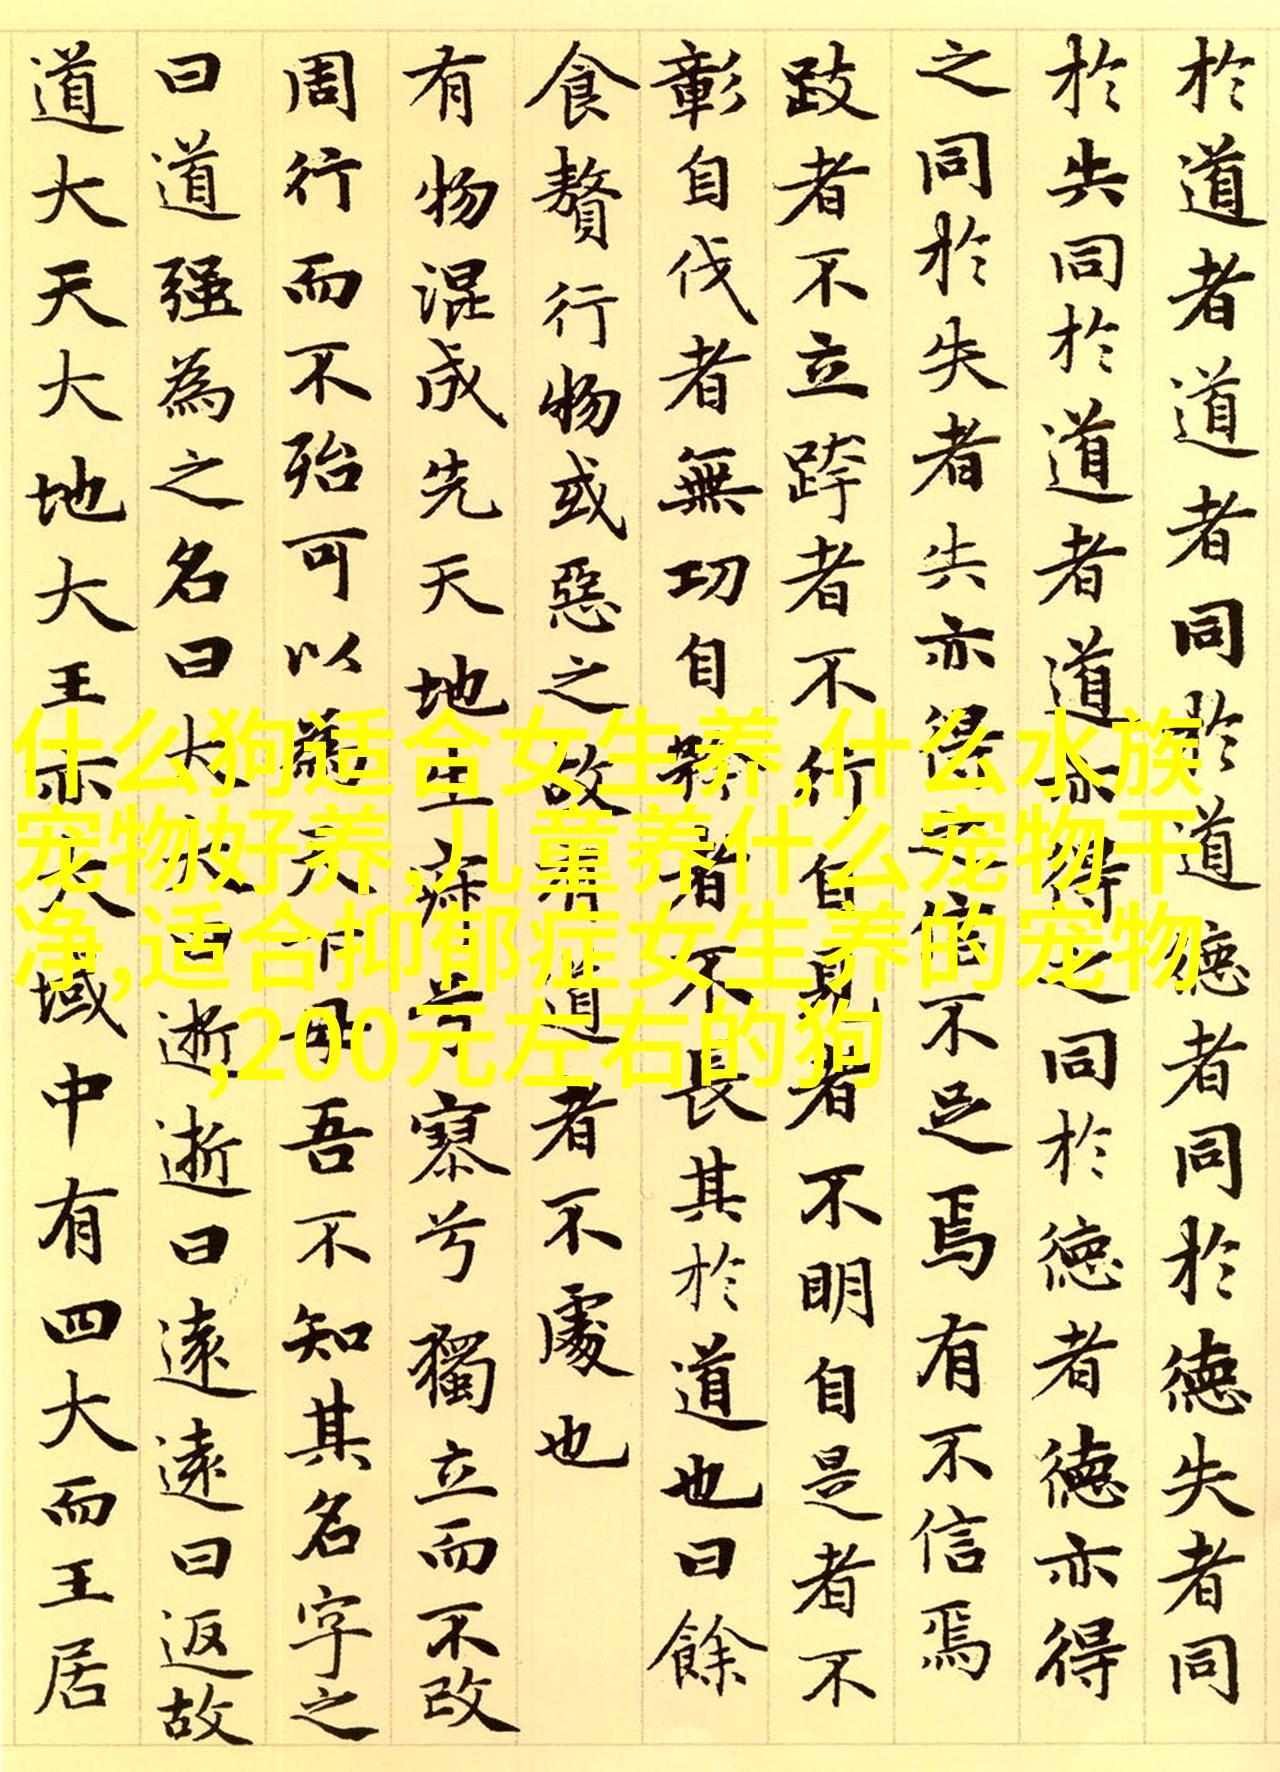 於道者道者同於道德者同於德失者同
於失同於道者道亦得之同於德者德亦得
之同於失者失亦得之信不足焉有不信焉
跂者不立跨者不行自見者不明自是者不
彰自伐者無功自矜者不長其於道也曰餘
食贅行物或惡之故有道者不處也
有物混成先天地生寂兮寥兮獨立而不改
周行而不殆可以為天下母吾不知其名字之
曰道强為之名曰大大曰逝逝曰遠遠曰返故
道大天大地大王亦大域中有四大而王居
什么狗适合女生养,什么水族
宠物好养,儿童养什么宠物干
净,适合抑郁症女生养的宠物
,200元左右的狗